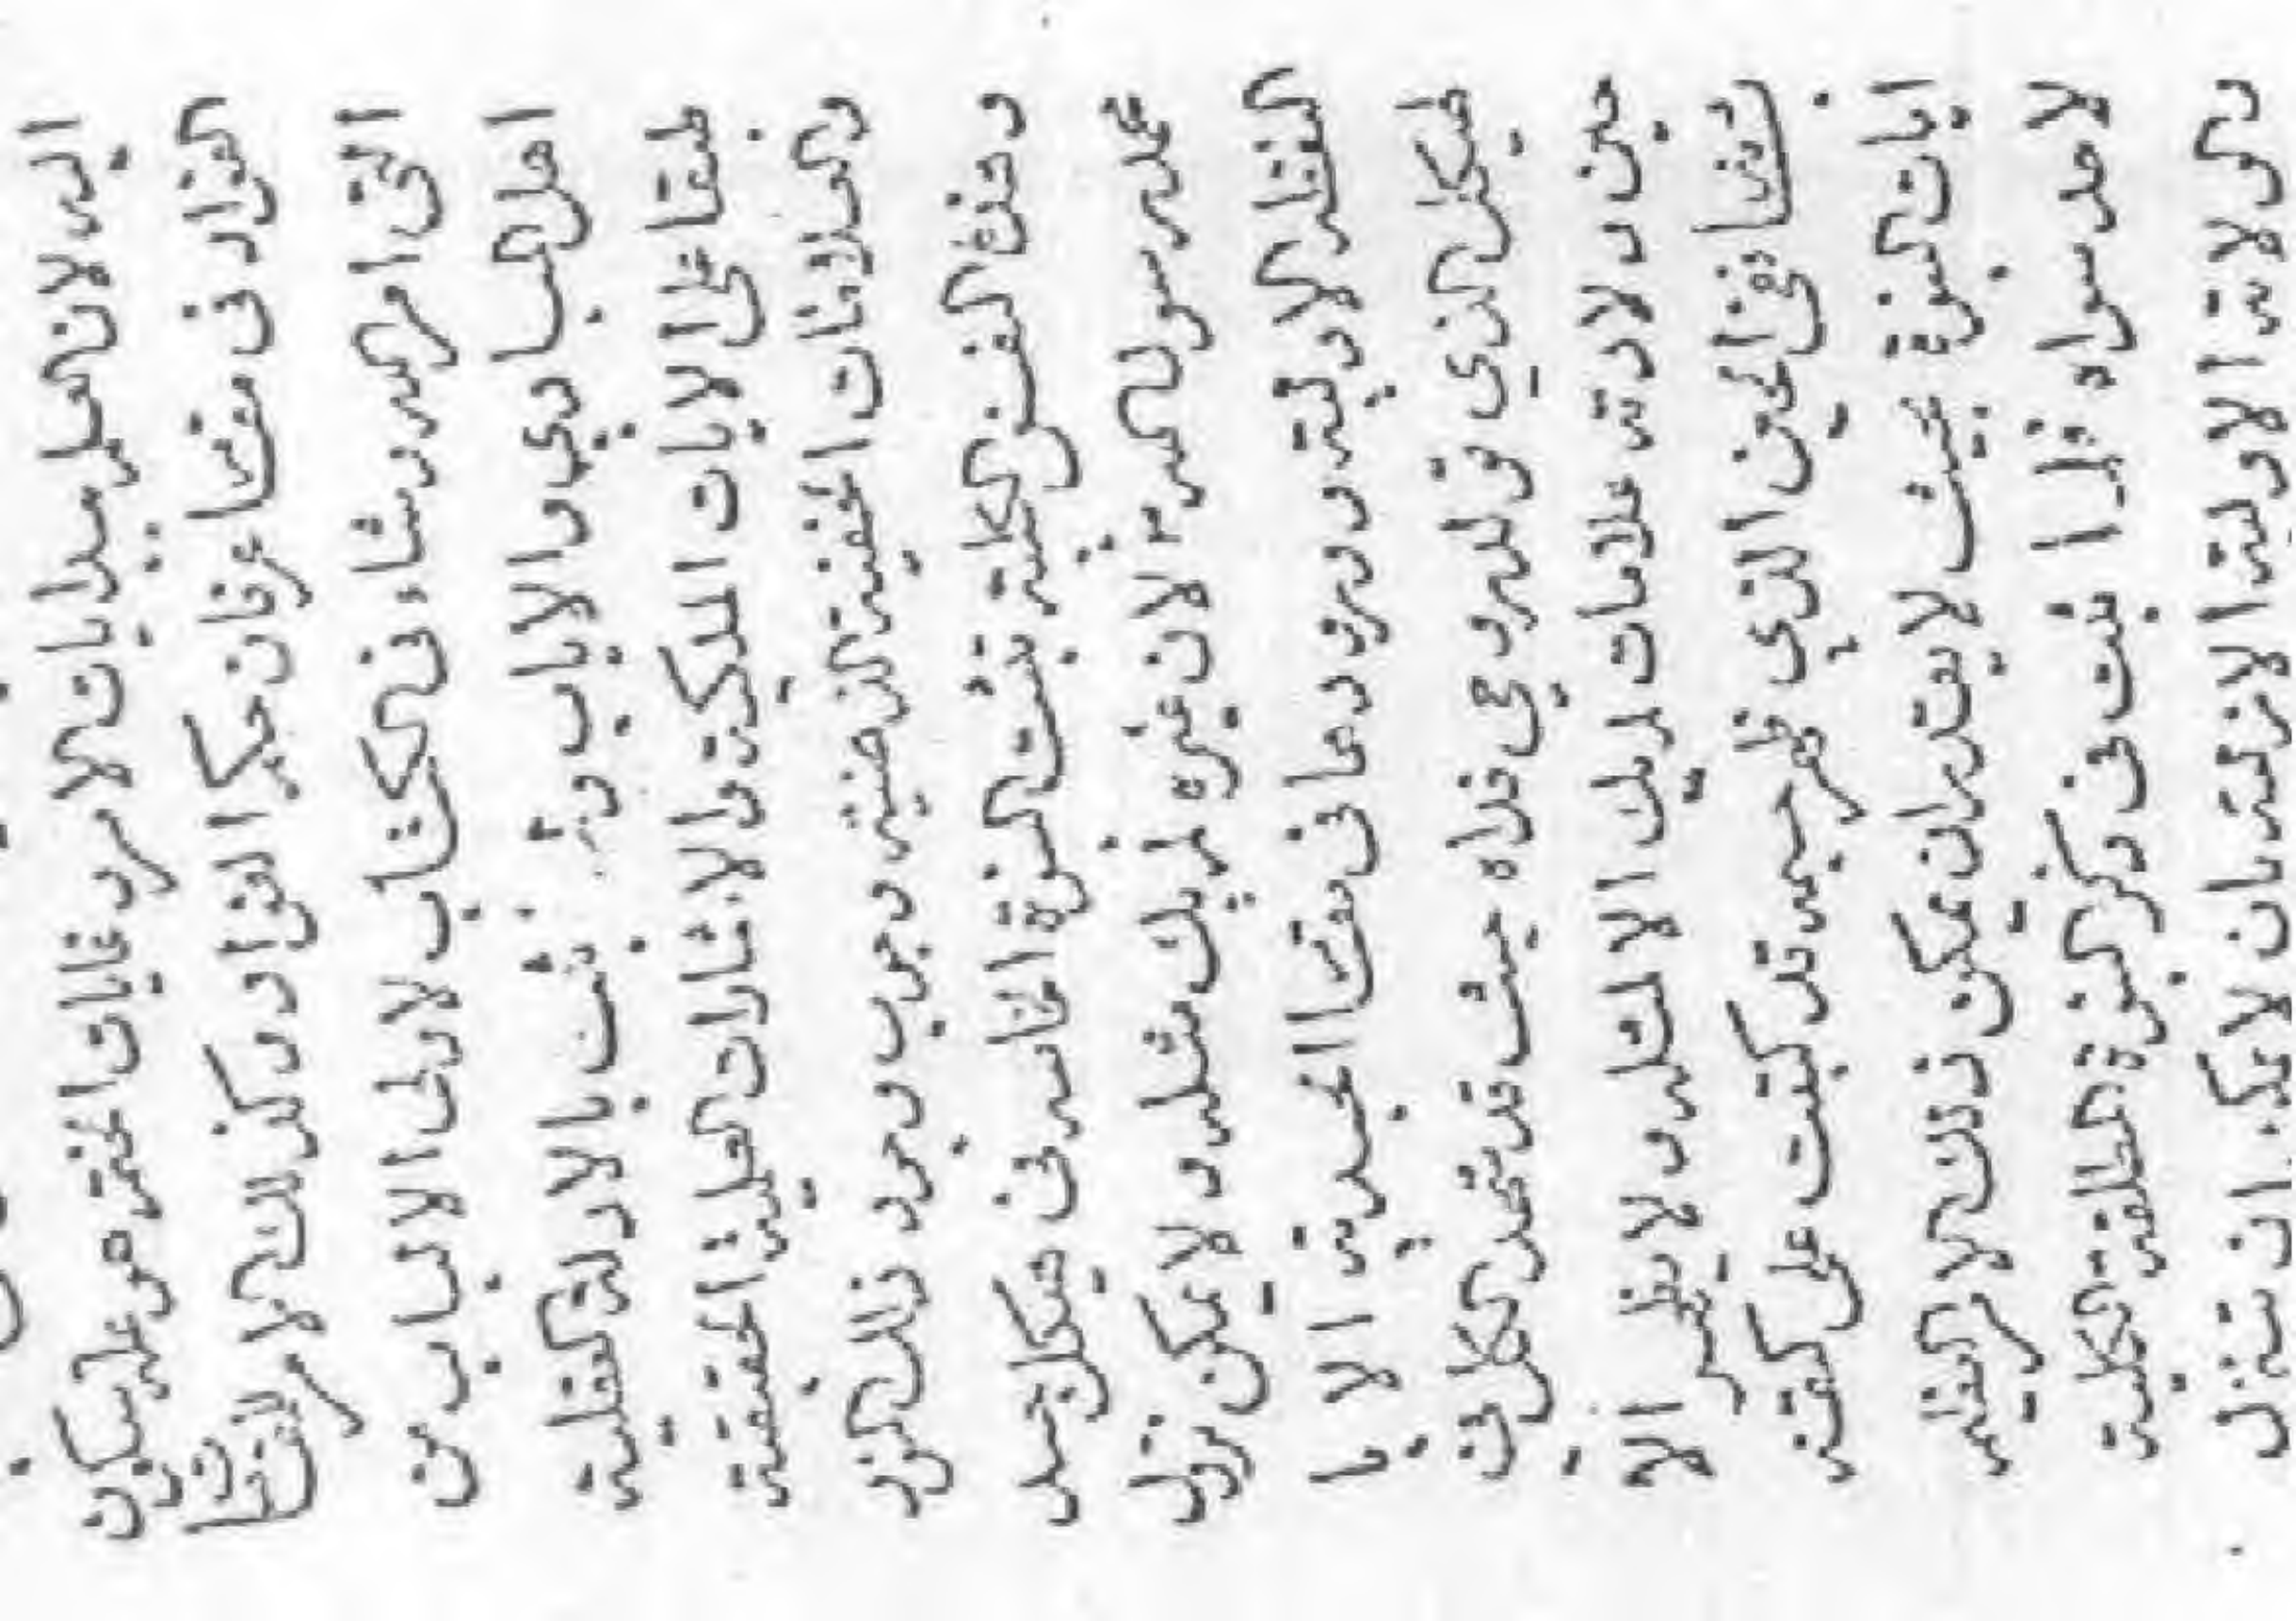 اليه لان العلم مبدايات الامر و غايات الختم هو عليه يكون
الفؤاد في مقام عرفان حكم الفؤاد و كذلك الامر
التي امر الله و شاء في الكتاب لاولى الالباب من
اهل المبادي و الاياب و ثبت بالادلة العقلية
طبقا على الايات الملكية و الاشارات العلية الحقيقة
و العلامات الخفية وجوب وجود ذلك الفرد
و النفس الكلية ثبت النبوة الخاصه في هيكل جسد
محمد رسول الله ص لان غيره لم يك مثله و لا يمكن نزول
النقطه الاولية و ورودها في مقام الجسدية الا با
لهيكل الذي تولد روحي فداه حيث قد شهد الكل في
حين ولادته علامات لم يك الا لمثله و لا يظهر الا
لشانه ففي الحين الذي ظهر جسده قد كتبت على كتفه
ايات النبوة بحيث لا يقدر ان يمكن ذلك الامر العظيم
لاحد سواه و لما اثبت في ذكر النبوة المطلقة الكلية
و الولاية الاولية الازلية بان لا يمكن ان تنزل